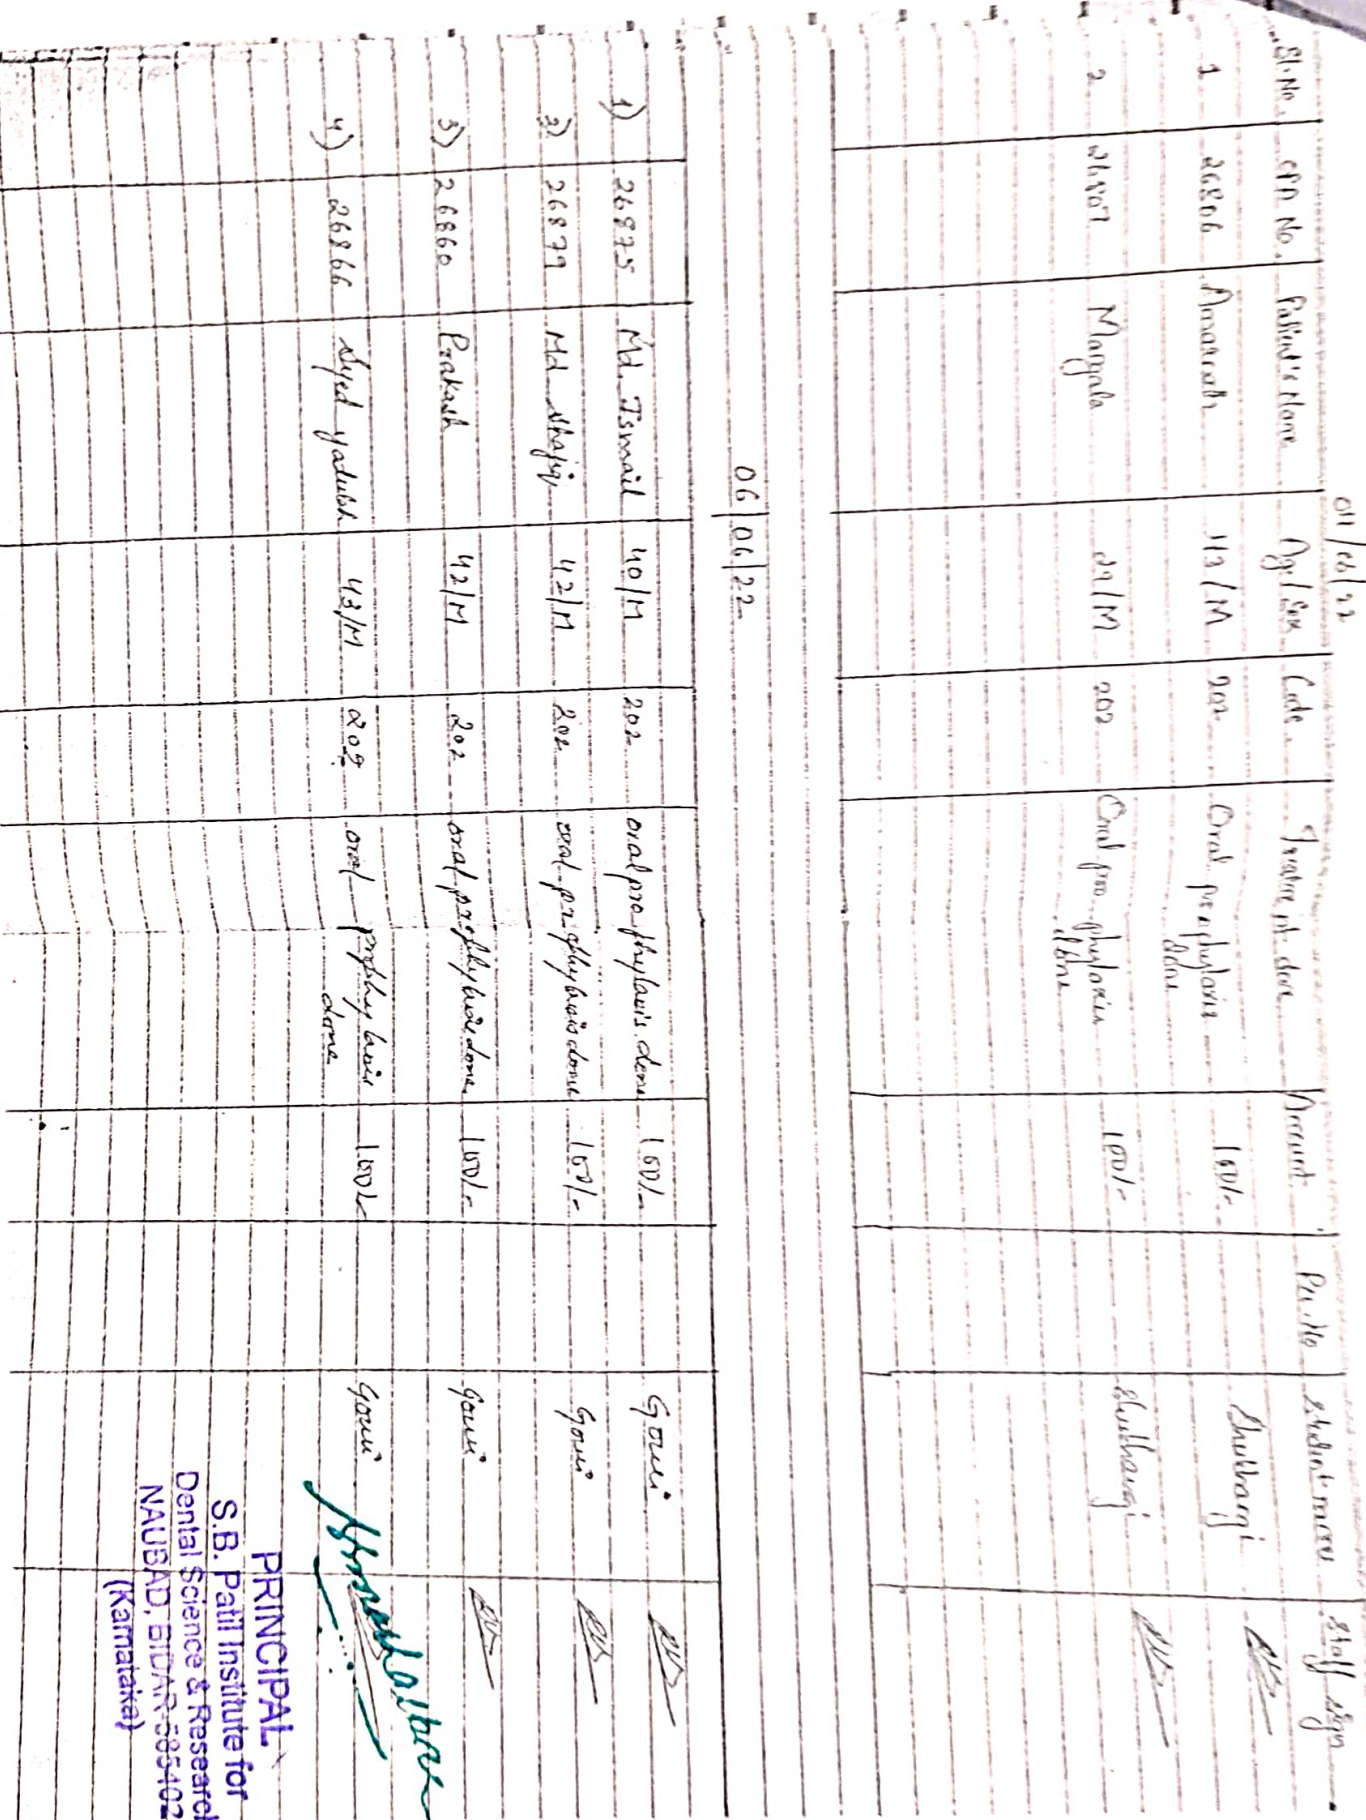 04/06/22
Sl.No. OPD No. Patient's Name Age/Sex Code Treatment done Amount Ph.No Student name Staff sign
1 26806 Amarnath 43/M 202 Oral prophylaxis 100/- Shubhangi
done
2 26807 Mangala 29/M 202 Oral pro phylaxis 100/- Shubhangi
done
06/06/22
1) 26875 Md Ismail 40/M 202 oral prophylaxis done 100/- Gouri
2) 26879 Md Shafiq 42/M 202 oral prophylaxis done 100/- Gouri
3) 26860 Prakash 42/M 202 oral prophylaxis done 100/- Gouri
4) 26866 Syed 43/M 202 oral prophylaxis 100/- Gouri
done
PRINCIPAL
S.B. Patil Institute for
Dental Science & Research
NAUBAD, BIDAR-585402
(Karnataka)